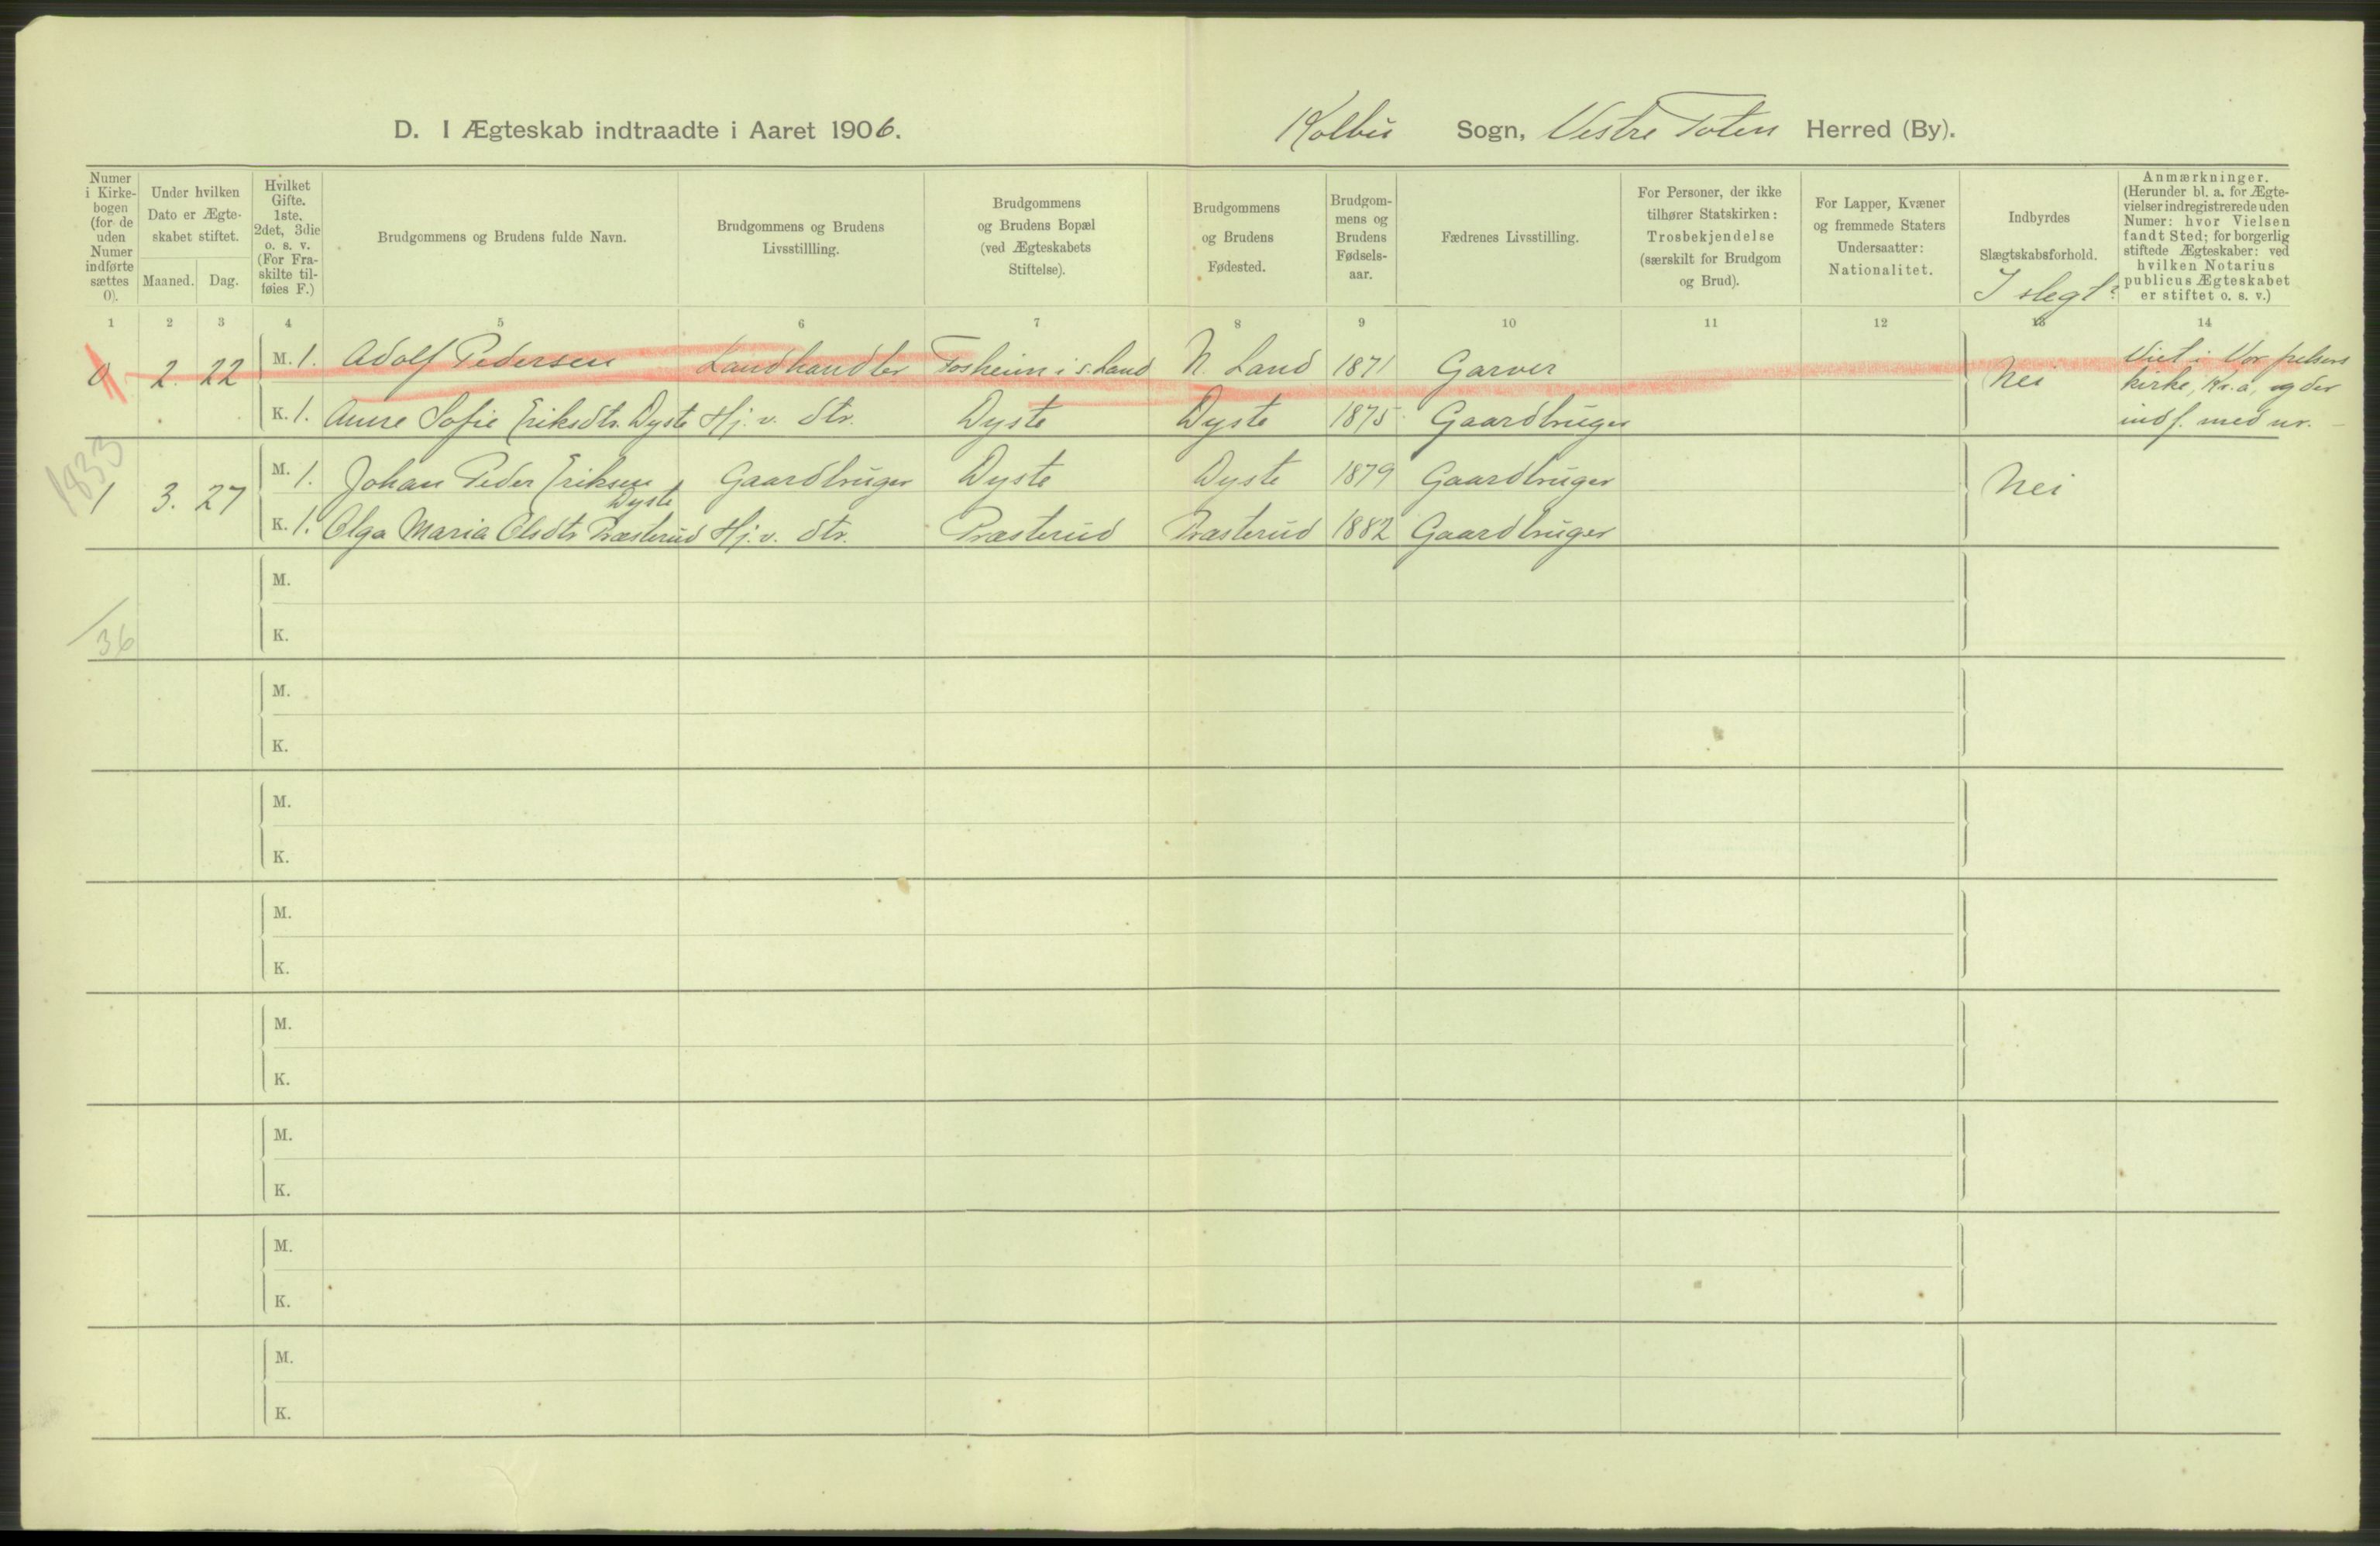 D. I Ægteskab indtraadte i Aaret 1906. Kolbu Sogn, Vestre Toten Herred (By).
Numer i Kirkebogen (for de uden Numer indførte sættes 0).
Under hvilken Dato er Ægteskabet stiftet.
Maaned. Dag.
Hvilket Gifte. 1ste, 2det, 3die o. s. v. (For Fraskilte tilføies F.)
Brudgommens og Brudens fulde Navn.
Brudgommens og Brudens Livsstillling.
Brudgommens og Brudens Bopæl (ved Ægteskabets Stiftelse).
Brudgommens og Brudens Fødested.
Brudgommens og Brudens Fødselsaar.
Fædrenes Livsstilling.
For Personer, der ikke tilhører Statskirken: Trosbekjendelse (særskilt for Brudgom og Brud).
For Lapper, Kvæner og fremmede Staters Undersaatter: Nationalitet.
Indbyrdes Slægtskabsforhold.
I slegt?
Anmærkninger. (Herunder bl. a. for Ægtevielser indregistrerede uden Numer: hvor Vielsen fandt Sted; for borgerlig stiftede Ægteskaber: ved hvilken Notarius publicus Ægteskabet er stiftet o. s. v.)
1 2 3 4 5 6 7 8 9 10 11 12 13 14
0 2. 22 M. 1. Adolf Pedersen Landhandler Fosheim i s. Land N. Land 1871 Garver Nei Viet i Vor frelsers
kirke, Kr.a, og der
K. 1. Anne Sofie Eriksdtr. Dyste Hj. v. dtr. Dyste Dyste 1875 Gaardbruger indf. med nr. -
1833
1 3. 27 M. 1. Johan Peder Eriksen Dyste Gaardbruger Dyste Dyste 1879 Gaardbruger Nei
K. 1. Olga Maria Olsdtr Præsterud Hj. v. dtr. Præsterud Præsterud 1882 Gaardbruger
M.
36
K.
M.
K.
M.
K.
M.
K.
M.
K.
M.
K.
M.
K.
M.
K.